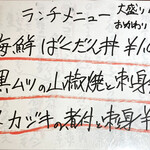 ランチメニュー
大盛り
おかわり
海鮮ばくだん丼 ¥1,0
黒ムツの山椒焼と刺身
メカヅキの煮付と刺身半